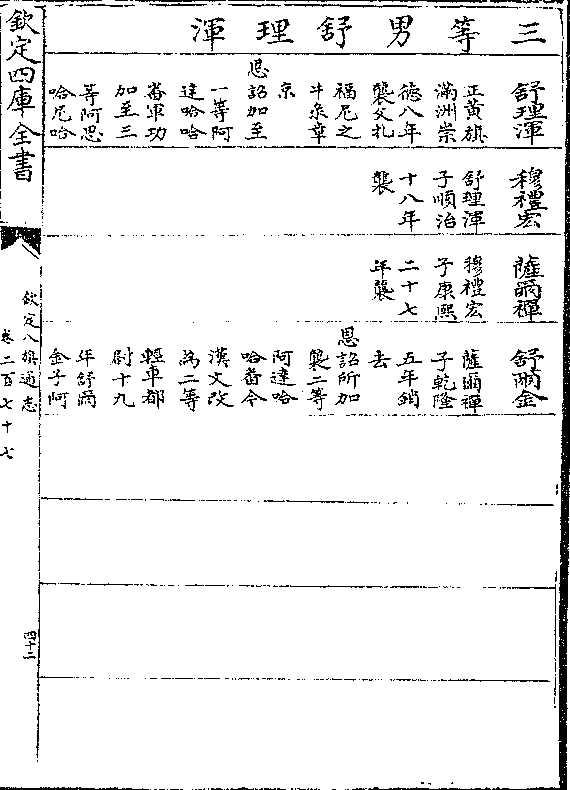 三等男舒理渾
舒理渾
正黃旗
滿洲崇
德八年
襲父扎
福尼之
牛彔章
京
恩詔加至
一等阿
達哈哈
番軍功
加至三
等阿思
哈尼哈
穆禮宏
舒理渾
子順治
十八年
襲
薩爾禪
穆禮宏
子康熙
二十七
年襲
舒爾金
薩爾禪
子乾隆
五年銷
去
恩詔所加
襲二等
阿達哈
哈番今
漢文改
為二等
輕車都
尉十九
年舒爾
金子阿
欽定四庫全書
欽定八旗通志
卷二百七十七
四十二